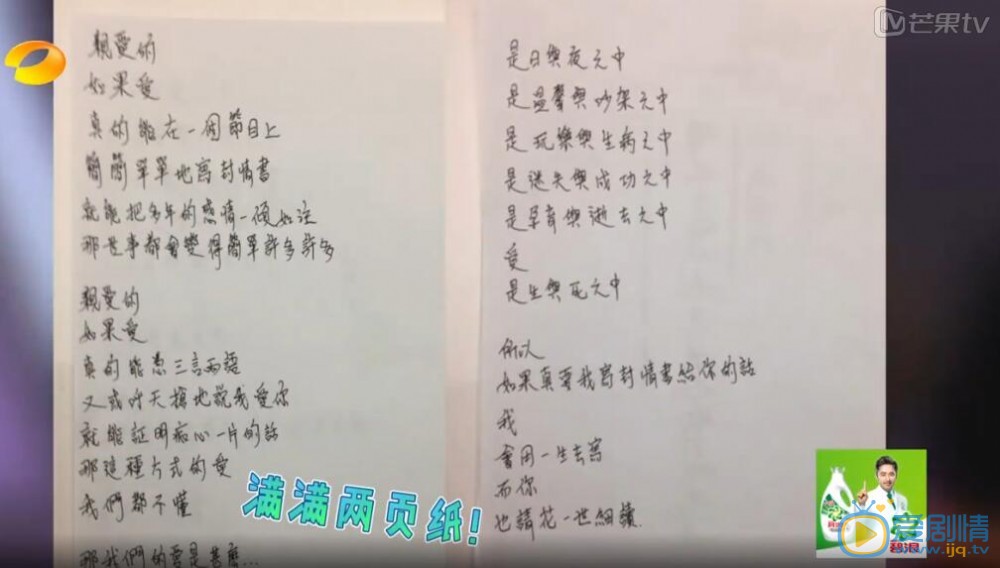 親愛的
如果愛
真的能在一個節目上
簡簡單單地寫封情書
就能把多年的感情一傾如注
那世事都會變得簡單許多許多
親愛的
如果愛
真的能憑三言兩語
又或呼天搶地說我愛你
就能証明痴心一片的話
那這種片式的愛
我們都不懂
那我們的愛是甚麼...
是日與夜之中
是溫馨與吵架之中
是玩樂與生病之中
是迷失與成功之中
是孕育與逝去之中
愛
是生與死之中
所以
如果真要我寫封情書給你的話
我
會用一生去寫
而你
也請花一世細讀.
满满两页纸!
芒果tv
碧浪
爱剧情
www.ijq.tv